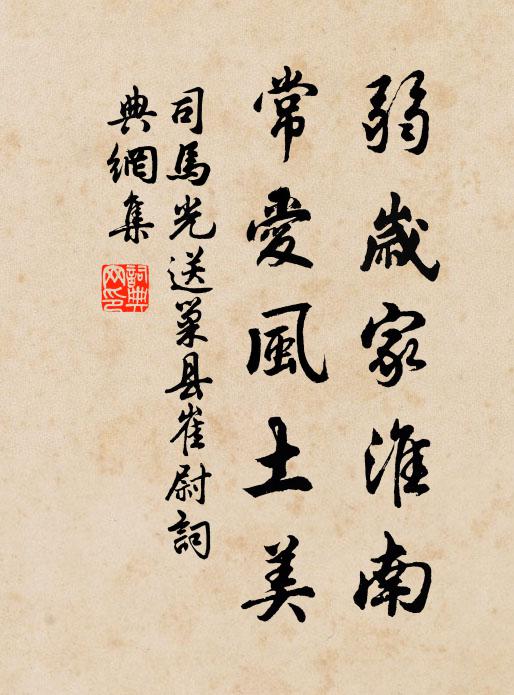 弱歲家淮南
常愛風土美
司馬光送巢县崔尉詞
典網集
詞典网印